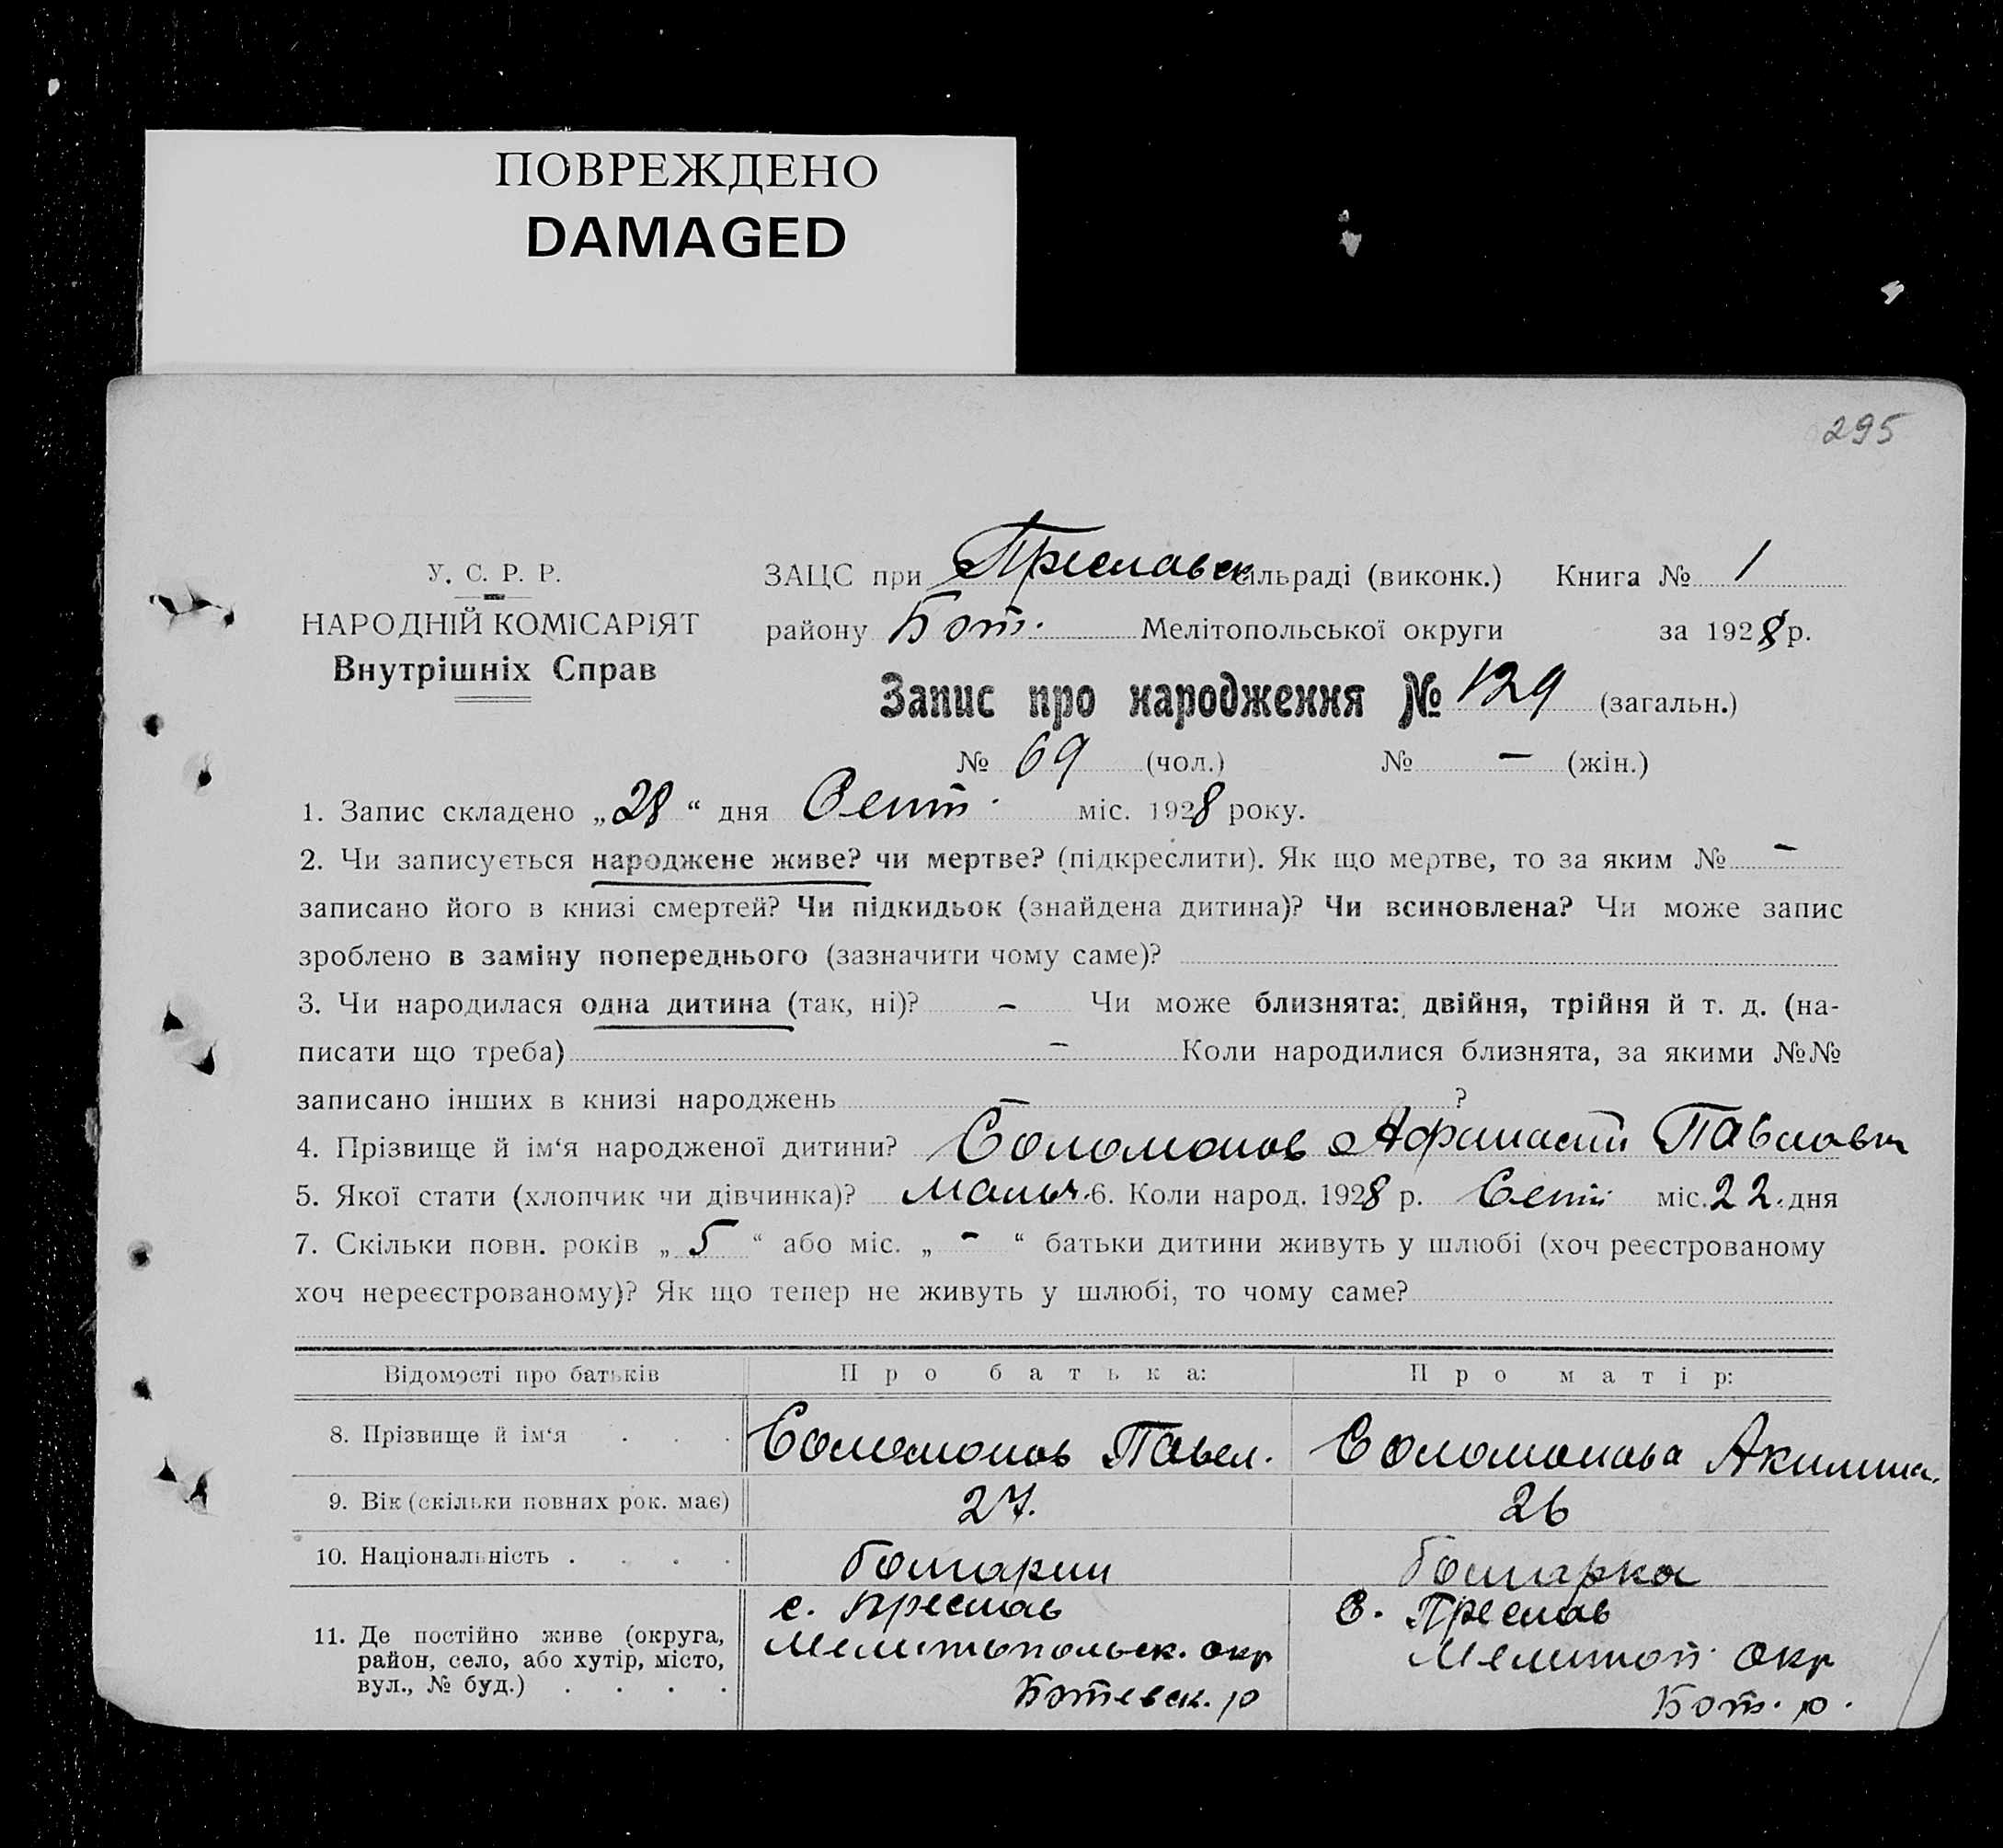 ПОВРЕЖДЕНО
DAMAGED
295
У. С. Р. Р.
НАРОДНІЙ КОМІСАРІЯТ
Внутрішніх Справ
ЗАЦС при Преславск сільраді (виконк.) Книга № 1
району Бот. Мелітопольської округи за 1928 р.
Запис про народження № 129 (загальн.)
№ 69 (чол.) № – (жін.)
1. Запис складено „28“ дня Сент. міс. 1928 року.
2. Чи записується народжене живе? чи мертве? (підкреслити). Як що мертве, то за яким № –
записано його в книзі смертей? Чи підкидьок (знайдена дитина)? Чи всиновлена? Чи може запис
зроблено в заміну попереднього (зазначити чому саме)?
3. Чи народилася одна дитина (так, ні)? – Чи може близнята: двійня, трійня й т. д. (на-
писати що треба) – Коли народилися близнята, за якими №№
записано інших в книзі народжень – ?
4. Прізвище й ім‘я народженої дитини? Соломонов Афанасий Павлович
5. Якої стати (хлопчик чи дівчинка)? Мальч. 6. Коли народ. 1928 р. Сент міс. 22. дня
7. Скільки повн. років „5“ або міс. „–“ батьки дитини живуть у шлюбі (хоч реєстрованому
хоч нереєстрованому)? Як що тепер не живуть у шлюбі, то чому саме?
Відомості про батьків Про батька: Про матір:
8. Прізвище й ім‘я . . . Соломонов Павел. Соломонова Акилина.
9. Вік (скільки повних рок. має) 27. 26
10. Національність . . . . болгарин болгарка
11. Де постійно живе (округа,
район, село, або хутір, місто,
вул., № буд.) . . . .
с. Преслав
Мелитопольск. окр
Ботевск. р
С. Преслав
Мелитоп. окр
Бот. р.